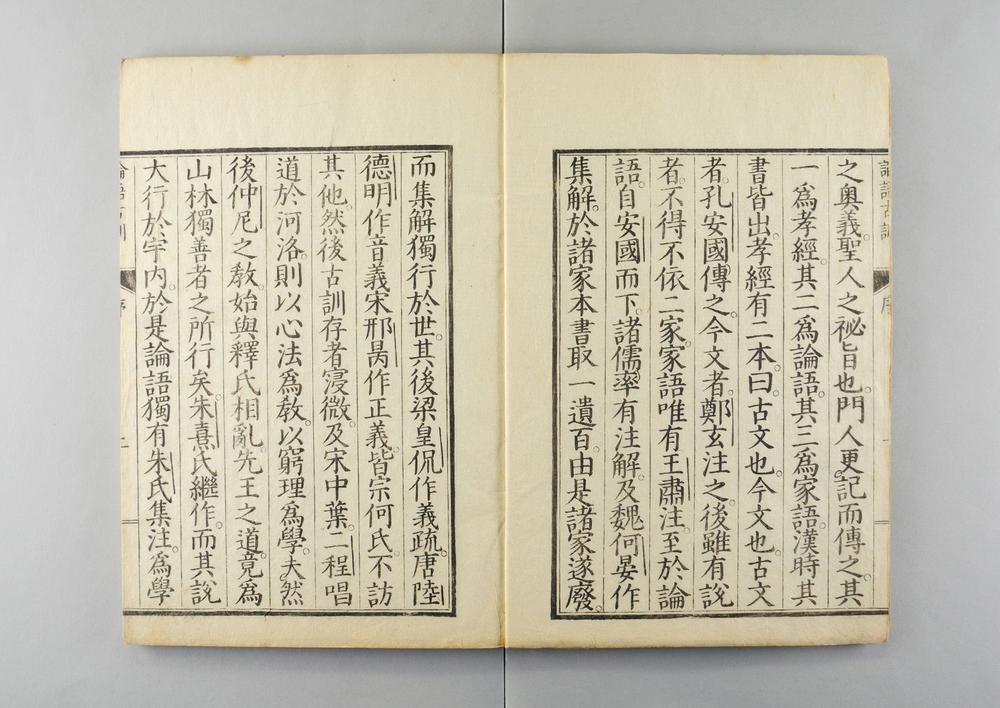 之奧義。聖人之祕旨也。門人更記而傳之。其
一爲孝經。其二爲論語。其三爲家語。漢時其
書皆出。孝經有二本。曰古文也。今文也。古文
者。孔安國傳之。今文者。鄭玄注之。後雖有說
者。不得不依二家。家語唯有王肅注。至於論
語。自安國而下。諸儒率有注解。及魏何晏作
集解。於諸家本書取一遺百。由是諸家遂廢。
而集解獨行於世。其後梁皇侃作義疏。唐陸
德明作音義。宋邢昺作正義。皆宗何氏。不訪
其他。然後古訓存者寖微。及宋中葉。二程唱
道於河洛。則以心法爲敎。以窮理爲學。夫然
後仲尼之敎。始與釋氏相亂。先王之道。竟爲
山林獨善者之所行矣。朱熹氏繼作。而其說
大行於宇內。於是論語獨有朱氏集注。爲學